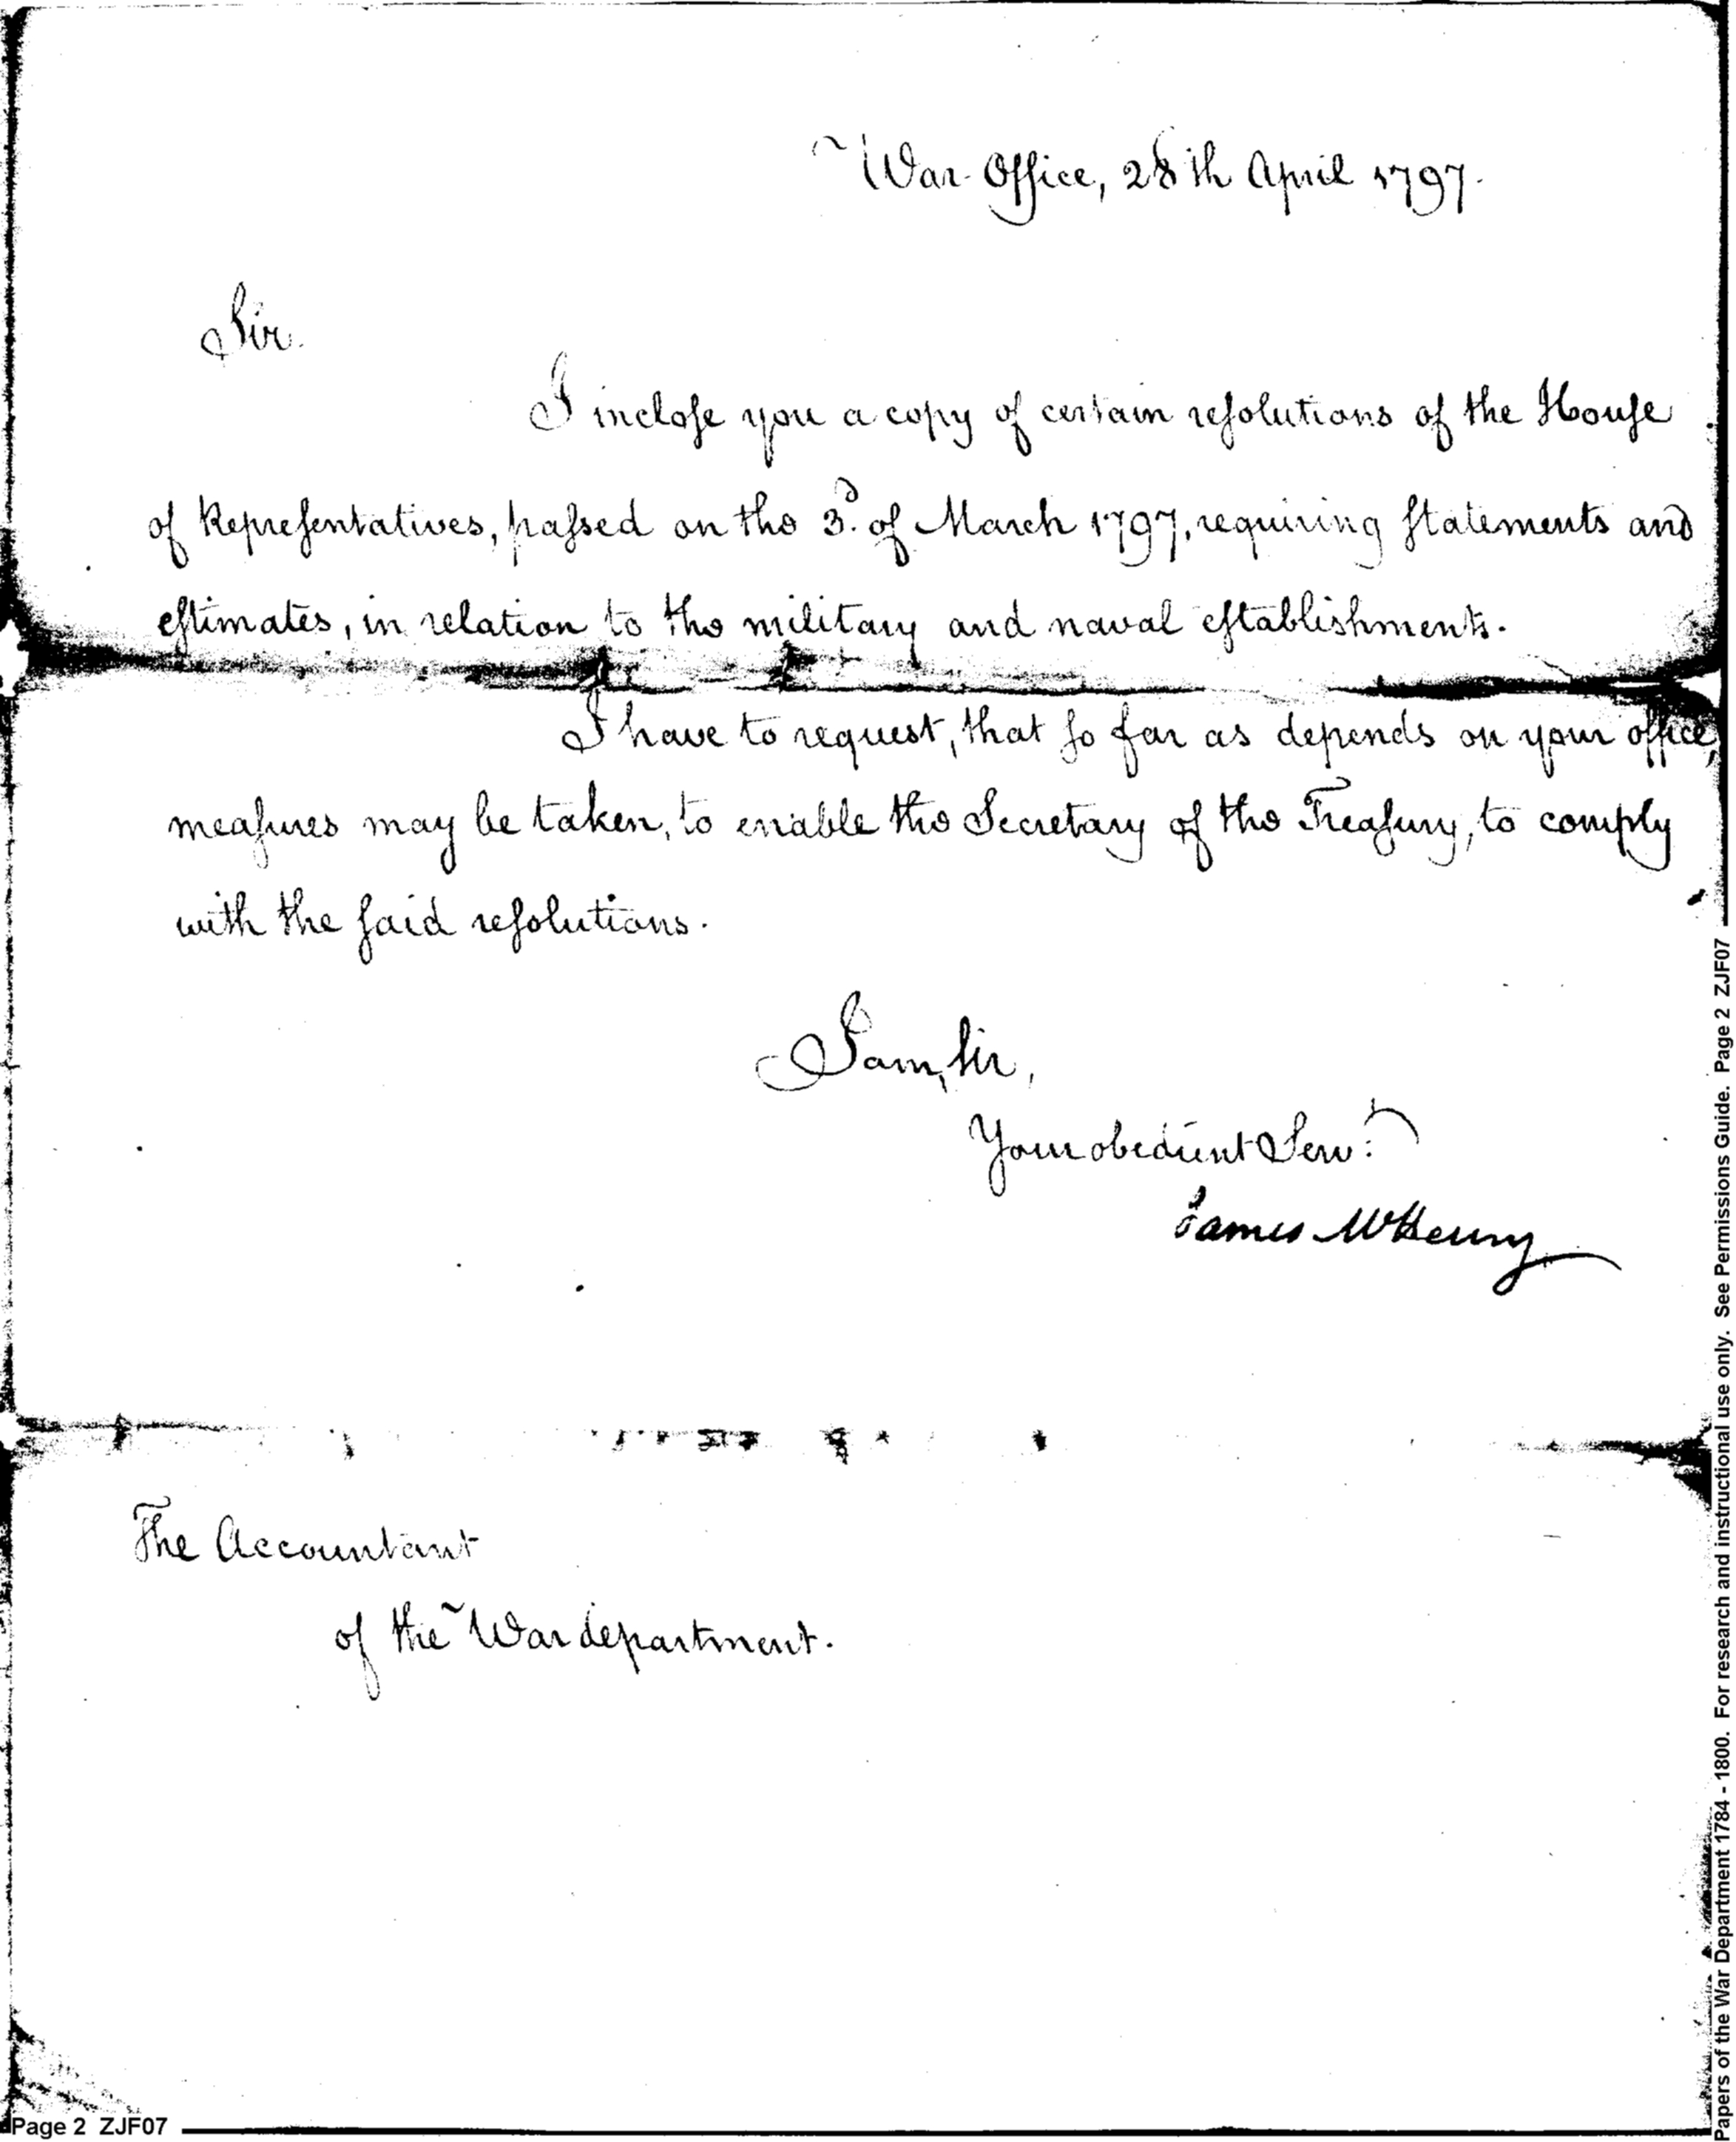 War Office, 28th April 1797.
Sir.
I inclose you a copy of certain resolutions of the House
of Representatives, passed on the 3d. of March 1797, requiring statements and
estimates, in relation to the military and naval establishments.
I have to request, that so far as depends on your office,
measures may be taken, to enable the Secretary of the Treasury, to comply
with the said resolutions.
I am, Sir,
Your obedient Servt.
James McHenry
The Accountant
of the War department.
Page 2 ZJF07
Papers of the War Department 1784 - 1800. For research and instructional use only. See Permissions Guide. Page 2 ZJF07